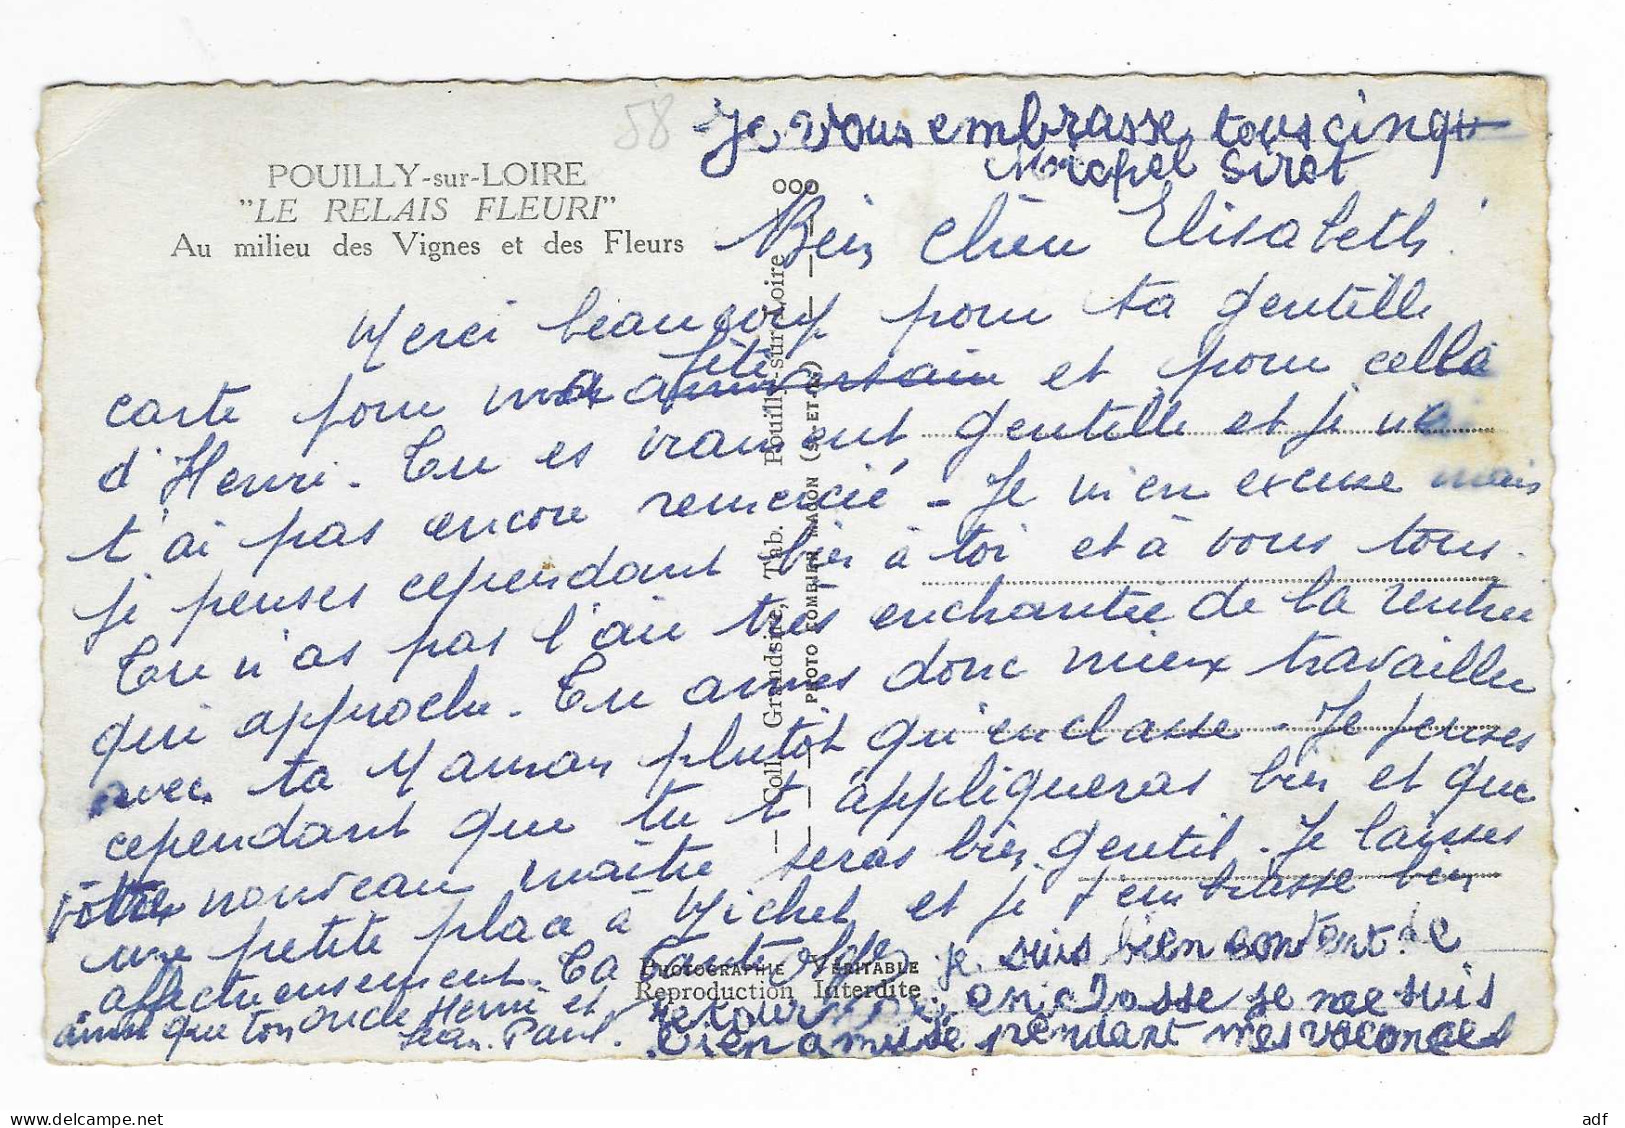 58
POUILLY-sur-LOIRE
"LE RELAIS FLEURI"
Au milieu des Vignes et des Fleurs
— Coll. Grandsire, Tab. Pouilly-sur-Loire —
PHOTO COMBIER MACON (S.-ET-L.)
Bien Chère Elisabeth.
Merci beaucoup pour ta gentille
carte pour ma fête anniversaire et pour cella
d'Henri. Tu es vraiment gentille et je ne
t'ai pas encore remercié - Je m'en excuse mais
je penses cependant bien à toi et à vous tous.
Tu n'as pas l'air très enchantée de la rentrée
qui approche. Tu aimes donc mieux travailler
avec ta Maman plutôt qu'en classe - Je penses
cependant que tu t'appliqueras bien et que
vôtre nouveau maître seras bien gentil. Je laisses
une petite place à Michel et je t'embrasse bien
affectueusement. Ta tante
ainsi que ton oncle Henri et
Jean-Paul.
PHOTOGRAPHIE VÉRITABLE
Reproduction Interdite
je suis bien content de
retourner en classe je me suis
bien amusé pendant mes vacances
Je vous embrasse tous cinq
Michel Siret
adf